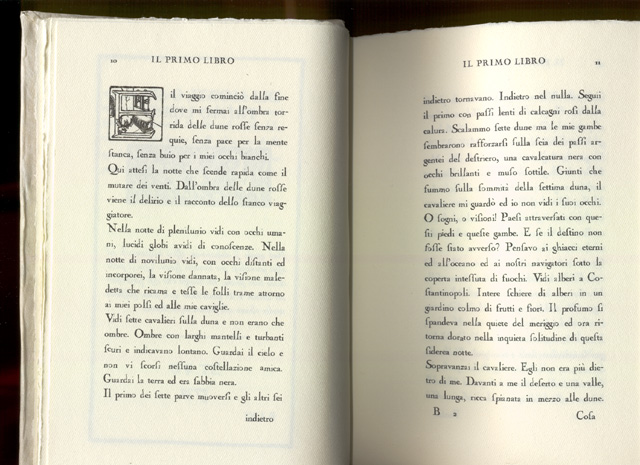 10 IL PRIMO LIBRO
il viaggio cominciò dalla fine
dove mi fermai all'ombra tor-
rida delle dune rosse senza re-
quie, senza pace per la mente
stanca, senza buio per i miei occhi bianchi.
Qui attesi la notte che scende rapida come il
mutare dei venti. Dall'ombra delle dune rosse
viene il delirio e il racconto dello stanco viag-
giatore.
Nella notte di plenilunio vidi con occhi uma-
ni, lucidi globi avidi di conoscenze. Nella
notte di novilunio vidi, con occhi distanti ed
incorporei, la visione dannata, la visione male-
detta che ricama e tesse le folli trame attorno
ai miei polsi ed alle mie caviglie.
Vidi sette cavalieri sulla duna e non erano che
ombre. Ombre con larghi mantelli e turbanti
scuri e indicavano lontano. Guardai il cielo e
non vi scorsi nessuna costellazione amica.
Guardai la terra ed era sabbia nera.
Il primo dei sette parve muoversi e gli altri sei
indietro
IL PRIMO LIBRO 11
indietro tornavano. Indietro nel nulla. Seguii
il primo con passi lenti di calcagni rosi dalla
calura. Scalammo sette dune ma le mie gambe
sembrarono rafforzarsi sulla scia dei passi ar-
gentei del destriero, una cavalcatura nera con
occhi brillanti e muso sottile. Giunti che
fummo sulla sommità della settima duna, il
cavaliere mi guardò ed io non vidi i suoi occhi.
O sogni, o visioni! Paesi attraversati con que-
sti piedi e queste gambe. E se il destino non
fosse stato avverso? Pensavo ai ghiacci eterni
ed all'oceano ed ai nostri navigatori sotto la
coperta intessuta di fuochi. Vidi alberi a Co-
stantinopoli. Intere schiere di alberi in un
giardino colmo di frutti e fiori. Il profumo si
spandeva nella quiete del meriggio ed ora ri-
torna dorato nella inquieta solitudine di questa
siderea notte.
Sopravanzai il cavaliere. Egli non era più die-
tro di me. Davanti a me il deserto e una valle,
una lunga, ricca spianata in mezzo alle dune.
B 2 Cosa